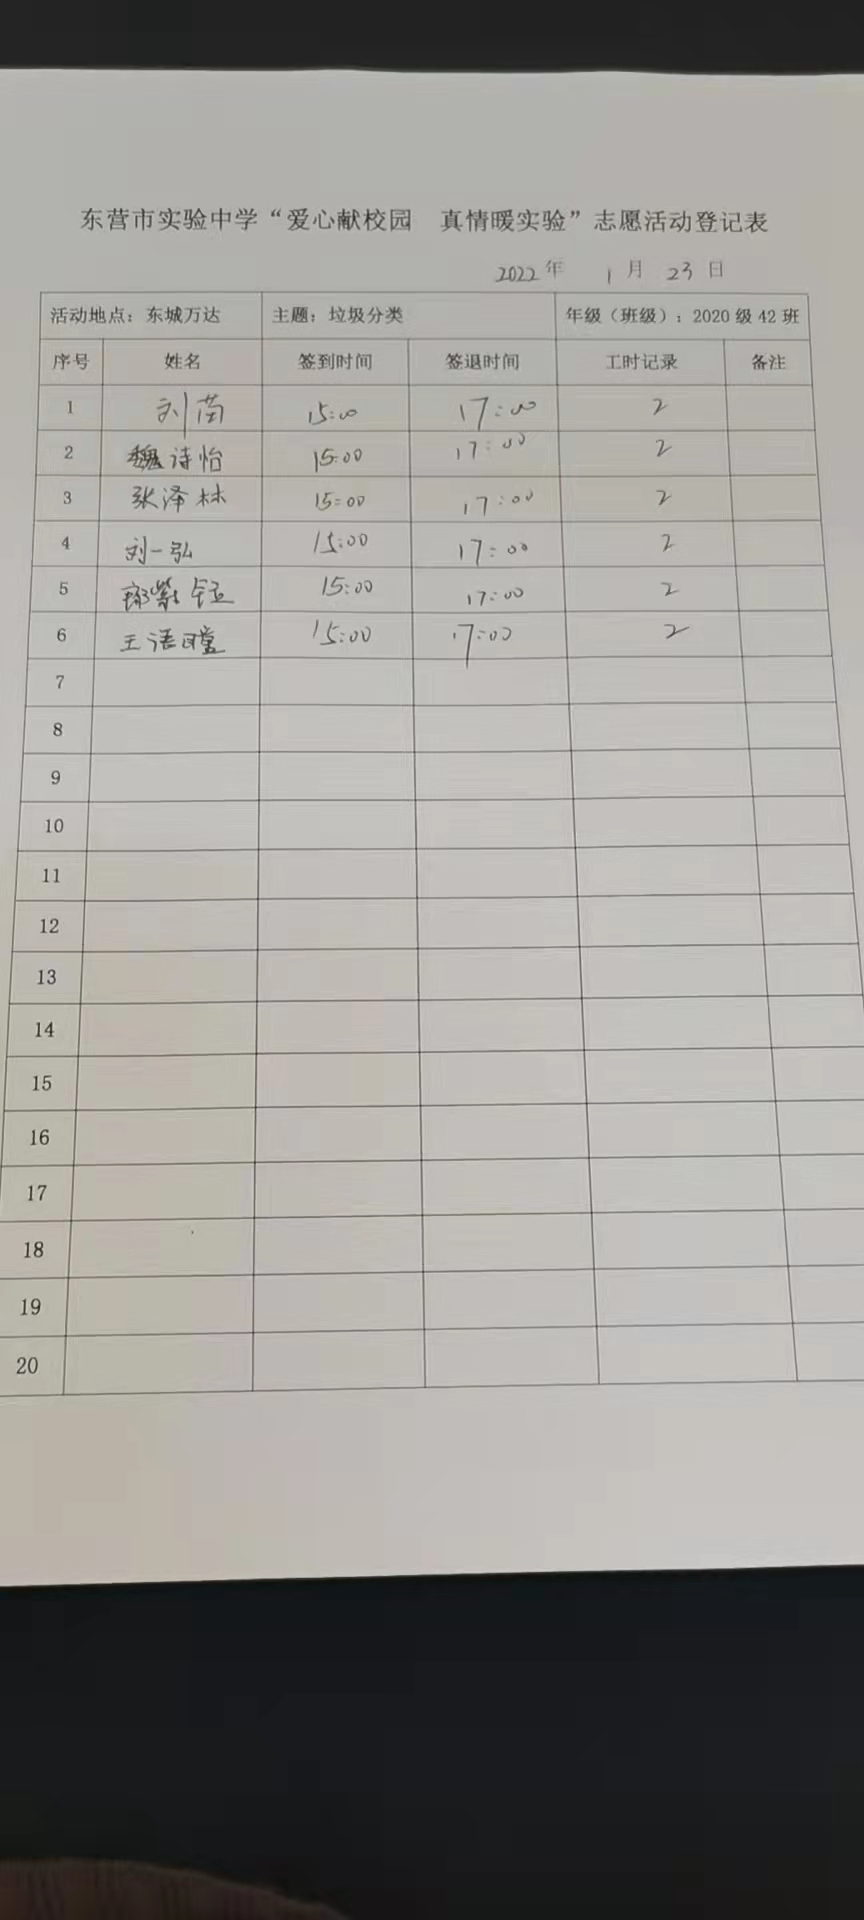 东营市实验中学“爱心献校园 真情暖实验”志愿活动登记表
2022年 1月 23日
活动地点：东城万达 主题：垃圾分类 年级（班级）：2020级42班
序号 姓名 签到时间 签退时间 工时记录 备注
1 刘苗 15:00 17:00 2
2 魏诗怡 15:00 17:00 2
3 张泽林 15:00 17:00 2
4 刘一弘 15:00 17:00 2
5 紫钰 15:00 17:00 2
6 王语瞳 15:00 17:00 2
7
8
9
10
11
12
13
14
15
16
17
18
19
20